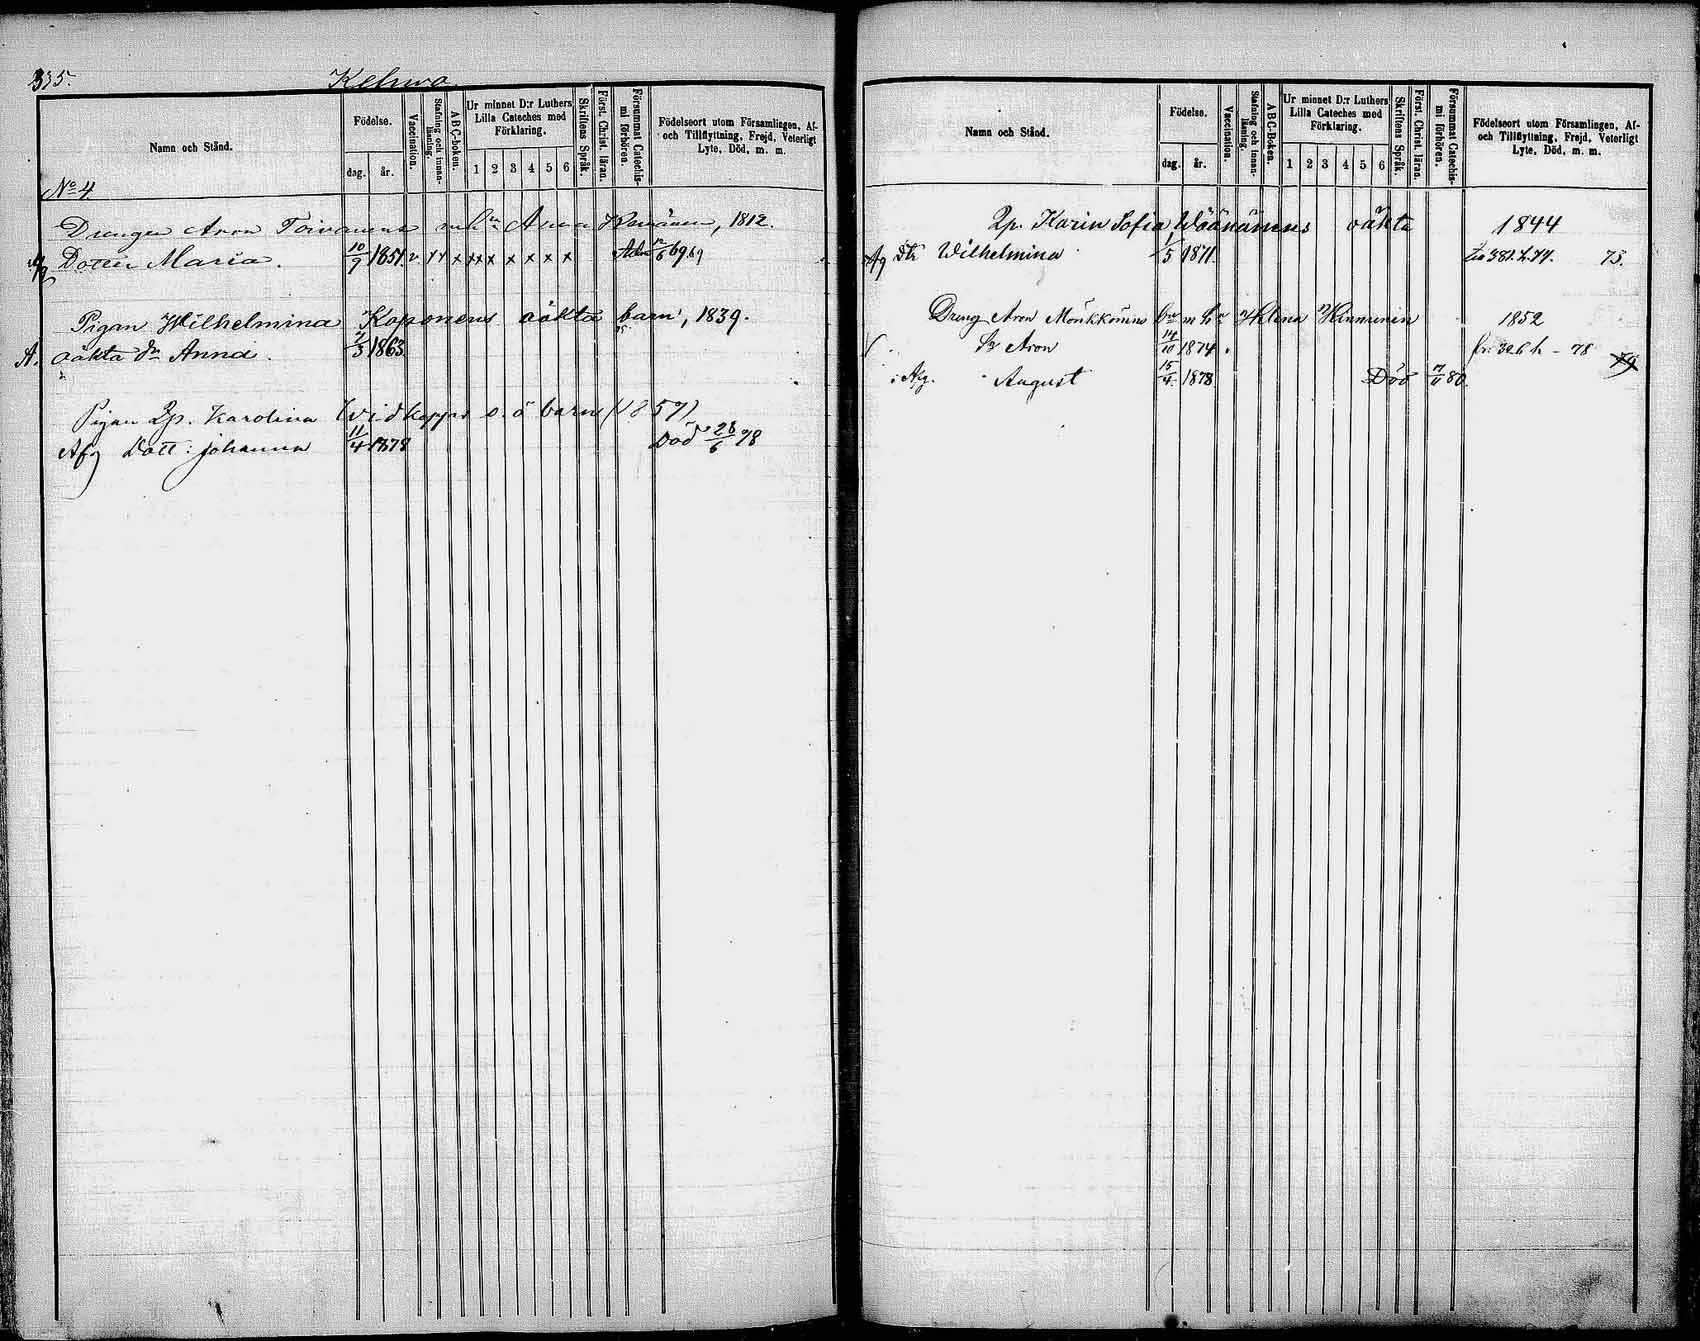 335. Kelwa
Namn och Stånd.
Födelse.
dag. år.
Vaccination.
Stafning och innanläsning.
ABC-boken.
Ur minnet D:r Luthers Lilla Cateches med Förklaring.
1 2 3 4 5 6
Skriftens Språk.
Först. Christ. läran.
Försummat Catechismi förhören.
Födelseort utom Församlingen, Af- och Tillflyttning, Frejd, Veterligt Lyte, Död, m. m.
No 4
Drengen Aron Toivanens m hu Anna, 1812.
Dotter Maria. 10/9 1851 v x x x x x x x x x 69
Pigan Wilhelmina Koponens oäkta barn, 1839.
A. oäkta dr Anna. 2/3 1863
Pigan Lp. Karolina Hvidkoppas o. ä barn (1857)
Afg Dott: Johanna 11/4 1878 Död 28/6 78
Namn och Stånd.
Födelse.
dag. år.
Vaccination.
Stafning och innanläsning.
ABC-Boken.
Ur minnet D:r Luthers Lilla Cateches med Förklaring.
1 2 3 4 5 6
Skriftens Språk.
Först. Christ. läran.
Försummat Catechismi förhören.
Födelseort utom Församlingen, Af- och Tillflyttning, Frejd, Veterligt Lyte, Död, m. m.
Lp. Karin Sofia Wäänänens oäkta 1844
Afg Dtr Wilhelmina 1/5 1871 75.
Dreng Aron Mönkkönens bn m hu Helena Hinnunen 1852
Sn Aron 14/10 1874 fr: 326 h - 78
Afg. August 15/4 1878 Död 80